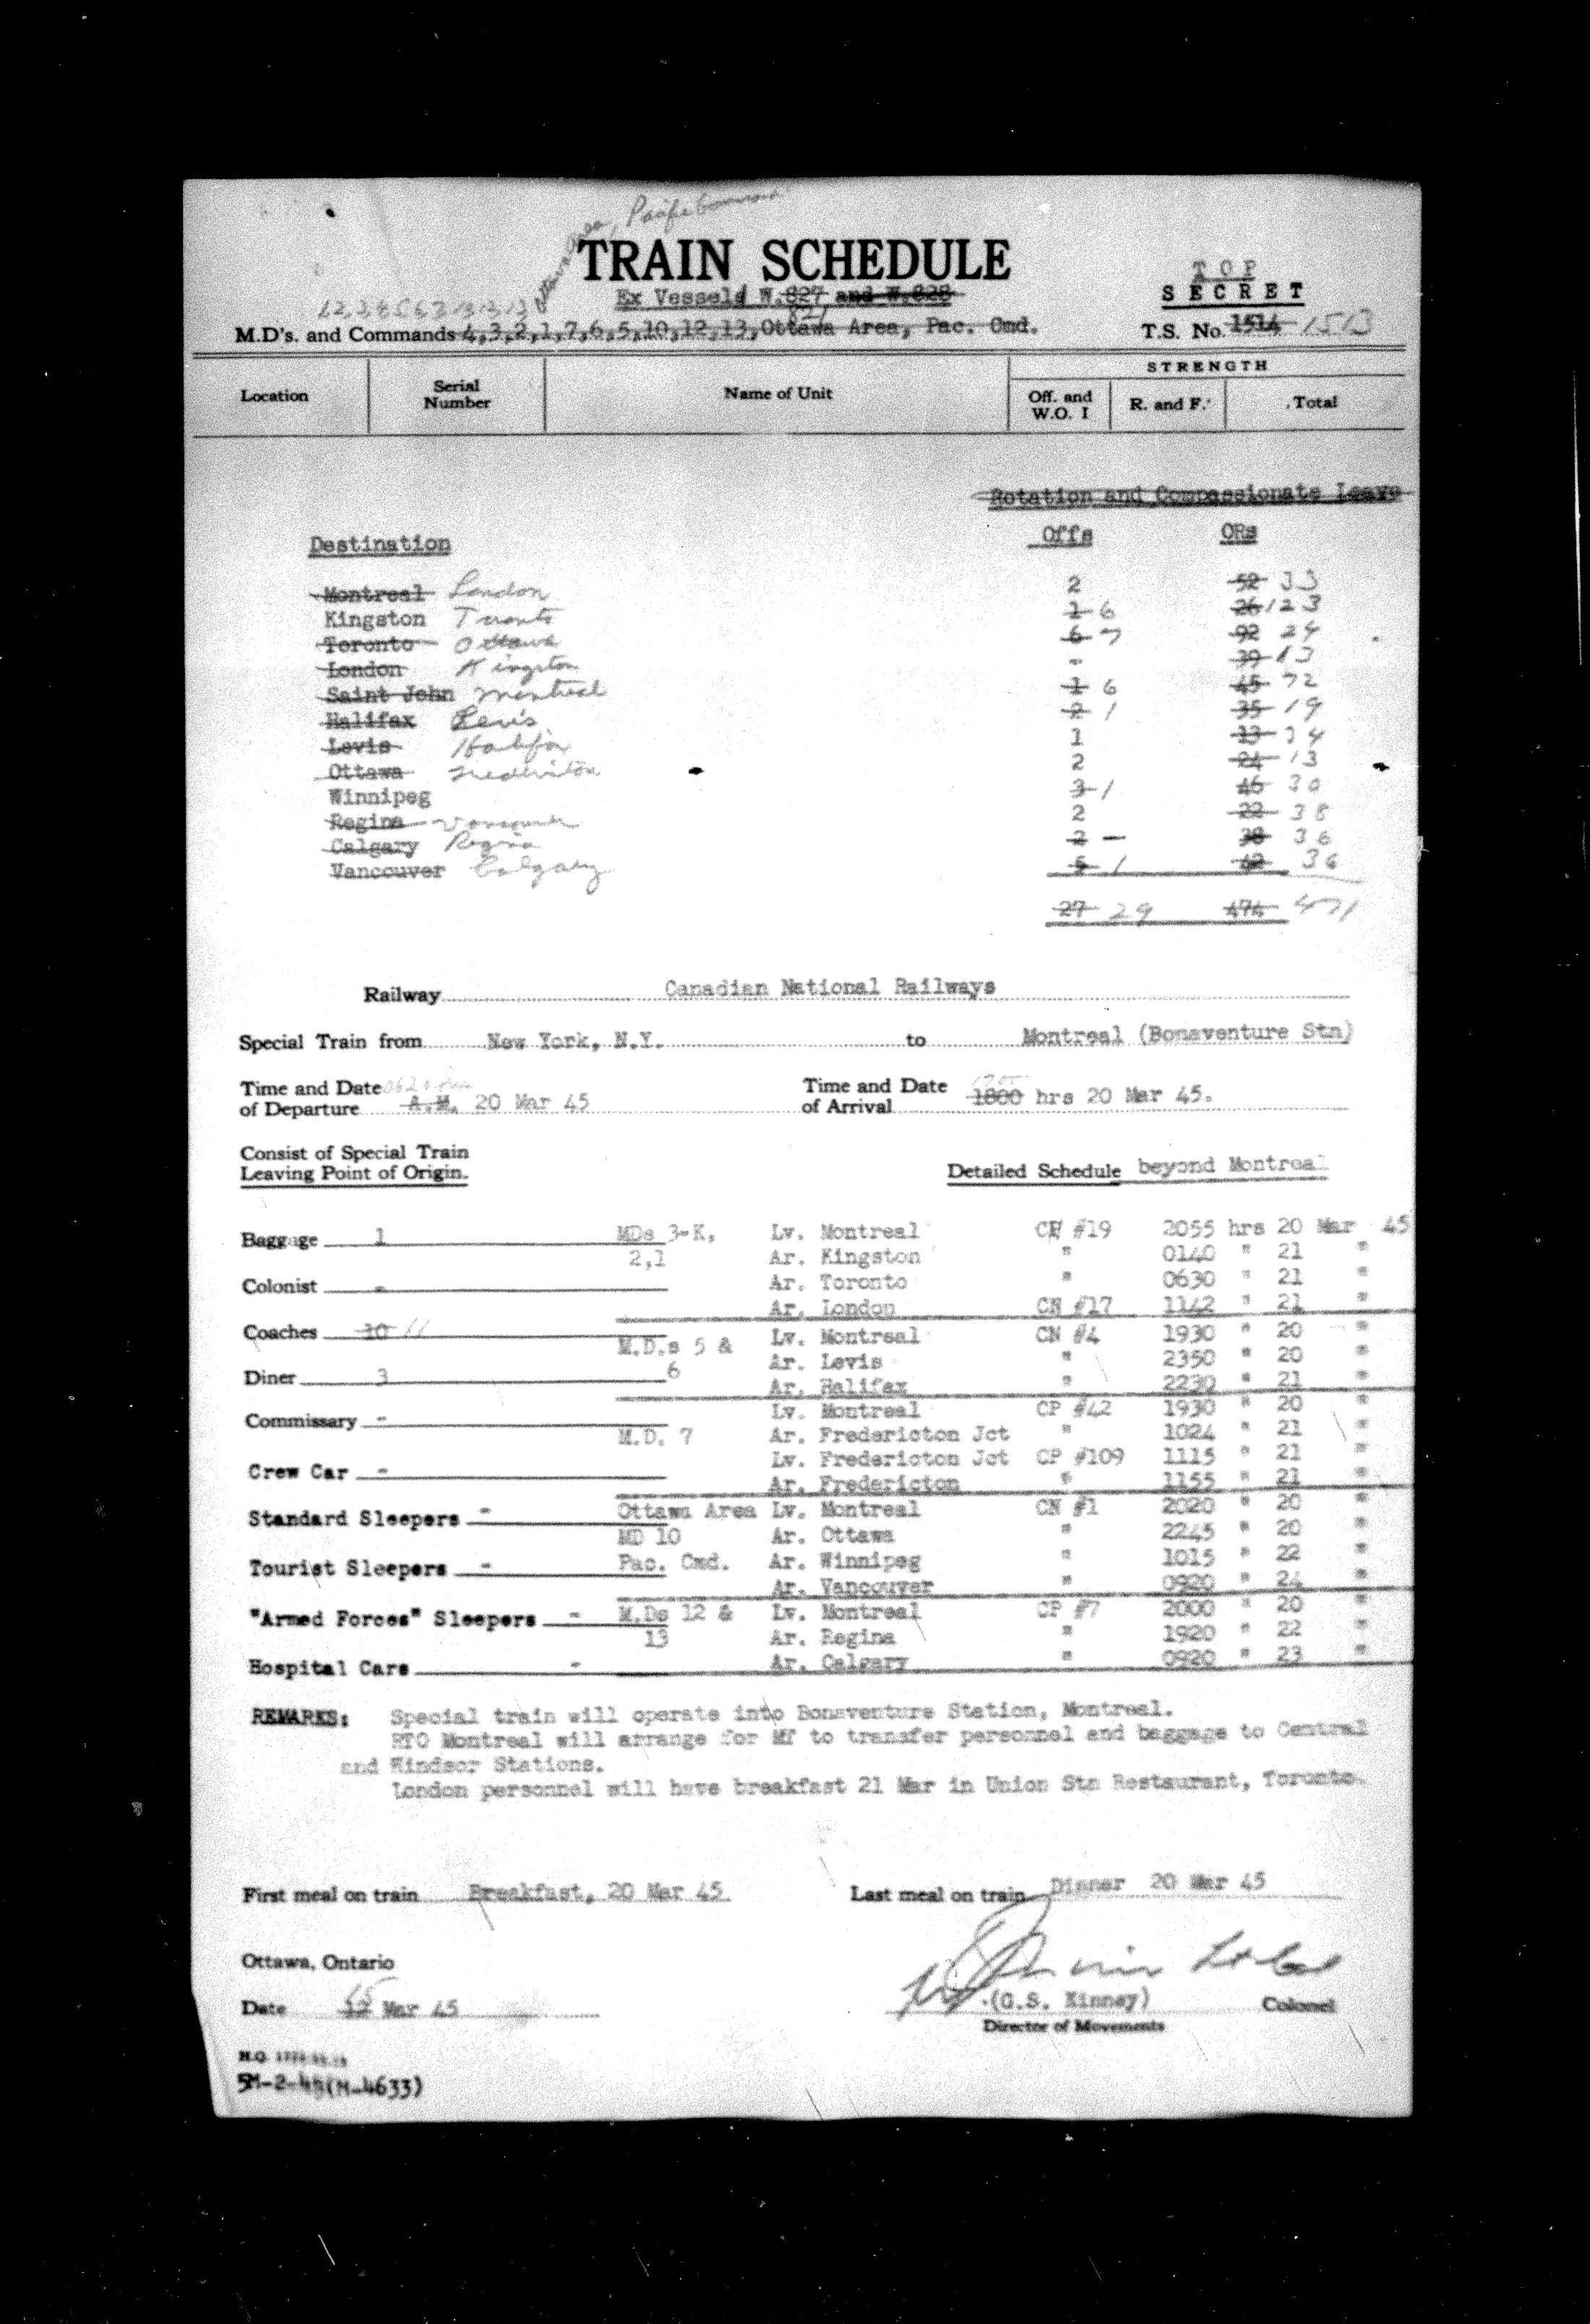 Ottawa Area, Pacific Command
TRAIN SCHEDULE
TOP
SECRET
Ex Vessels W.827 and W.828
821
M.D's. and Commands 4,3,2,1,7,6,5,10,12,13,Ottawa Area, Pac. Cmd.
T.S. No. 1514 1513
STRENGTH
Location Serial Number Name of Unit Off. and W.O. I R. and F. Total
Rotation and Compassionate Leave
Destination Offs ORs
Montreal London 2 52 33
Kingston Toronto 1 6 26 123
Toronto Ottawa 6 7 92 24
London Kingston - 39 13
Saint John Montreal 1 6 45 72
Halifax Levis 2 1 35 19
Levis Halifax 1 13 34
Ottawa Fredericton 2 24 13
Winnipeg 3 1 46 30
Regina Vancouver 2 22 38
Calgary Regina 2 - 38 36
Vancouver Calgary 5 1 42 36
27 29 474 471
Railway Canadian National Railways
Special Train from New York, N.Y. to Montreal (Bonaventure Stn)
Time and Date of Departure 0620 hrs A.M. 20 Mar 45
Time and Date of Arrival 1700 1800 hrs 20 Mar 45.
Consist of Special Train
Leaving Point of Origin.
Detailed Schedule beyond Montreal
Baggage 1 MDs 3-K, Lv. Montreal CN #19 2055 hrs 20 Mar 45
2,1 Ar. Kingston " 0140 " 21 "
Colonist - Ar. Toronto " 0630 " 21 "
Ar. London CN #17 1142 " 21 "
Coaches 10 11 M.D.s 5 & Lv. Montreal CN #4 1930 " 20 "
Ar. Levis " 2350 " 20 "
Diner 3 6 Ar. Halifax " 2230 " 21 "
Commissary - Lv. Montreal CP #42 1930 " 20 "
M.D. 7 Ar. Fredericton Jct " 1024 " 21 "
Crew Car - Lv. Fredericton Jct CP #109 1115 " 21 "
Ar. Fredericton " 1155 " 21 "
Standard Sleepers - Ottawa Area Lv. Montreal CN #1 2020 " 20 "
MD 10 Ar. Ottawa " 2245 " 20 "
Tourist Sleepers - Pac. Cmd. Ar. Winnipeg " 1015 " 22 "
Ar. Vancouver " 0920 " 24 "
"Armed Forces" Sleepers - M.Ds 12 & Lv. Montreal CP #7 2000 " 20 "
13 Ar. Regina " 1920 " 22 "
Hospital Cars - Ar. Calgary " 0920 " 23 "
REMARKS: Special train will operate into Bonaventure Station, Montreal.
RTO Montreal will arrange for MT to transfer personnel and baggage to Central
and Windsor Stations.
London personnel will have breakfast 21 Mar in Union Stn Restaurant, Toronto.
First meal on train Breakfast, 20 Mar 45 Last meal on train Dinner 20 Mar 45
Ottawa, Ontario
15
Date 12 Mar 45
(G.S. Kinney) Colonel
Director of Movements
5M-2-45(M-4633)